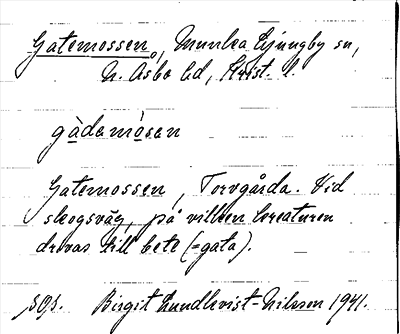 Gatemossen, Munka Ljungby sn,
N. Åsbo hd, Krist. l.
gàdamòsan
Gatemossen, Torvgårda. Vid
skogsväg, på vilken kreaturen
drevas till bete (=gata).
Birgit Lundkvist-Nilsson 1941.